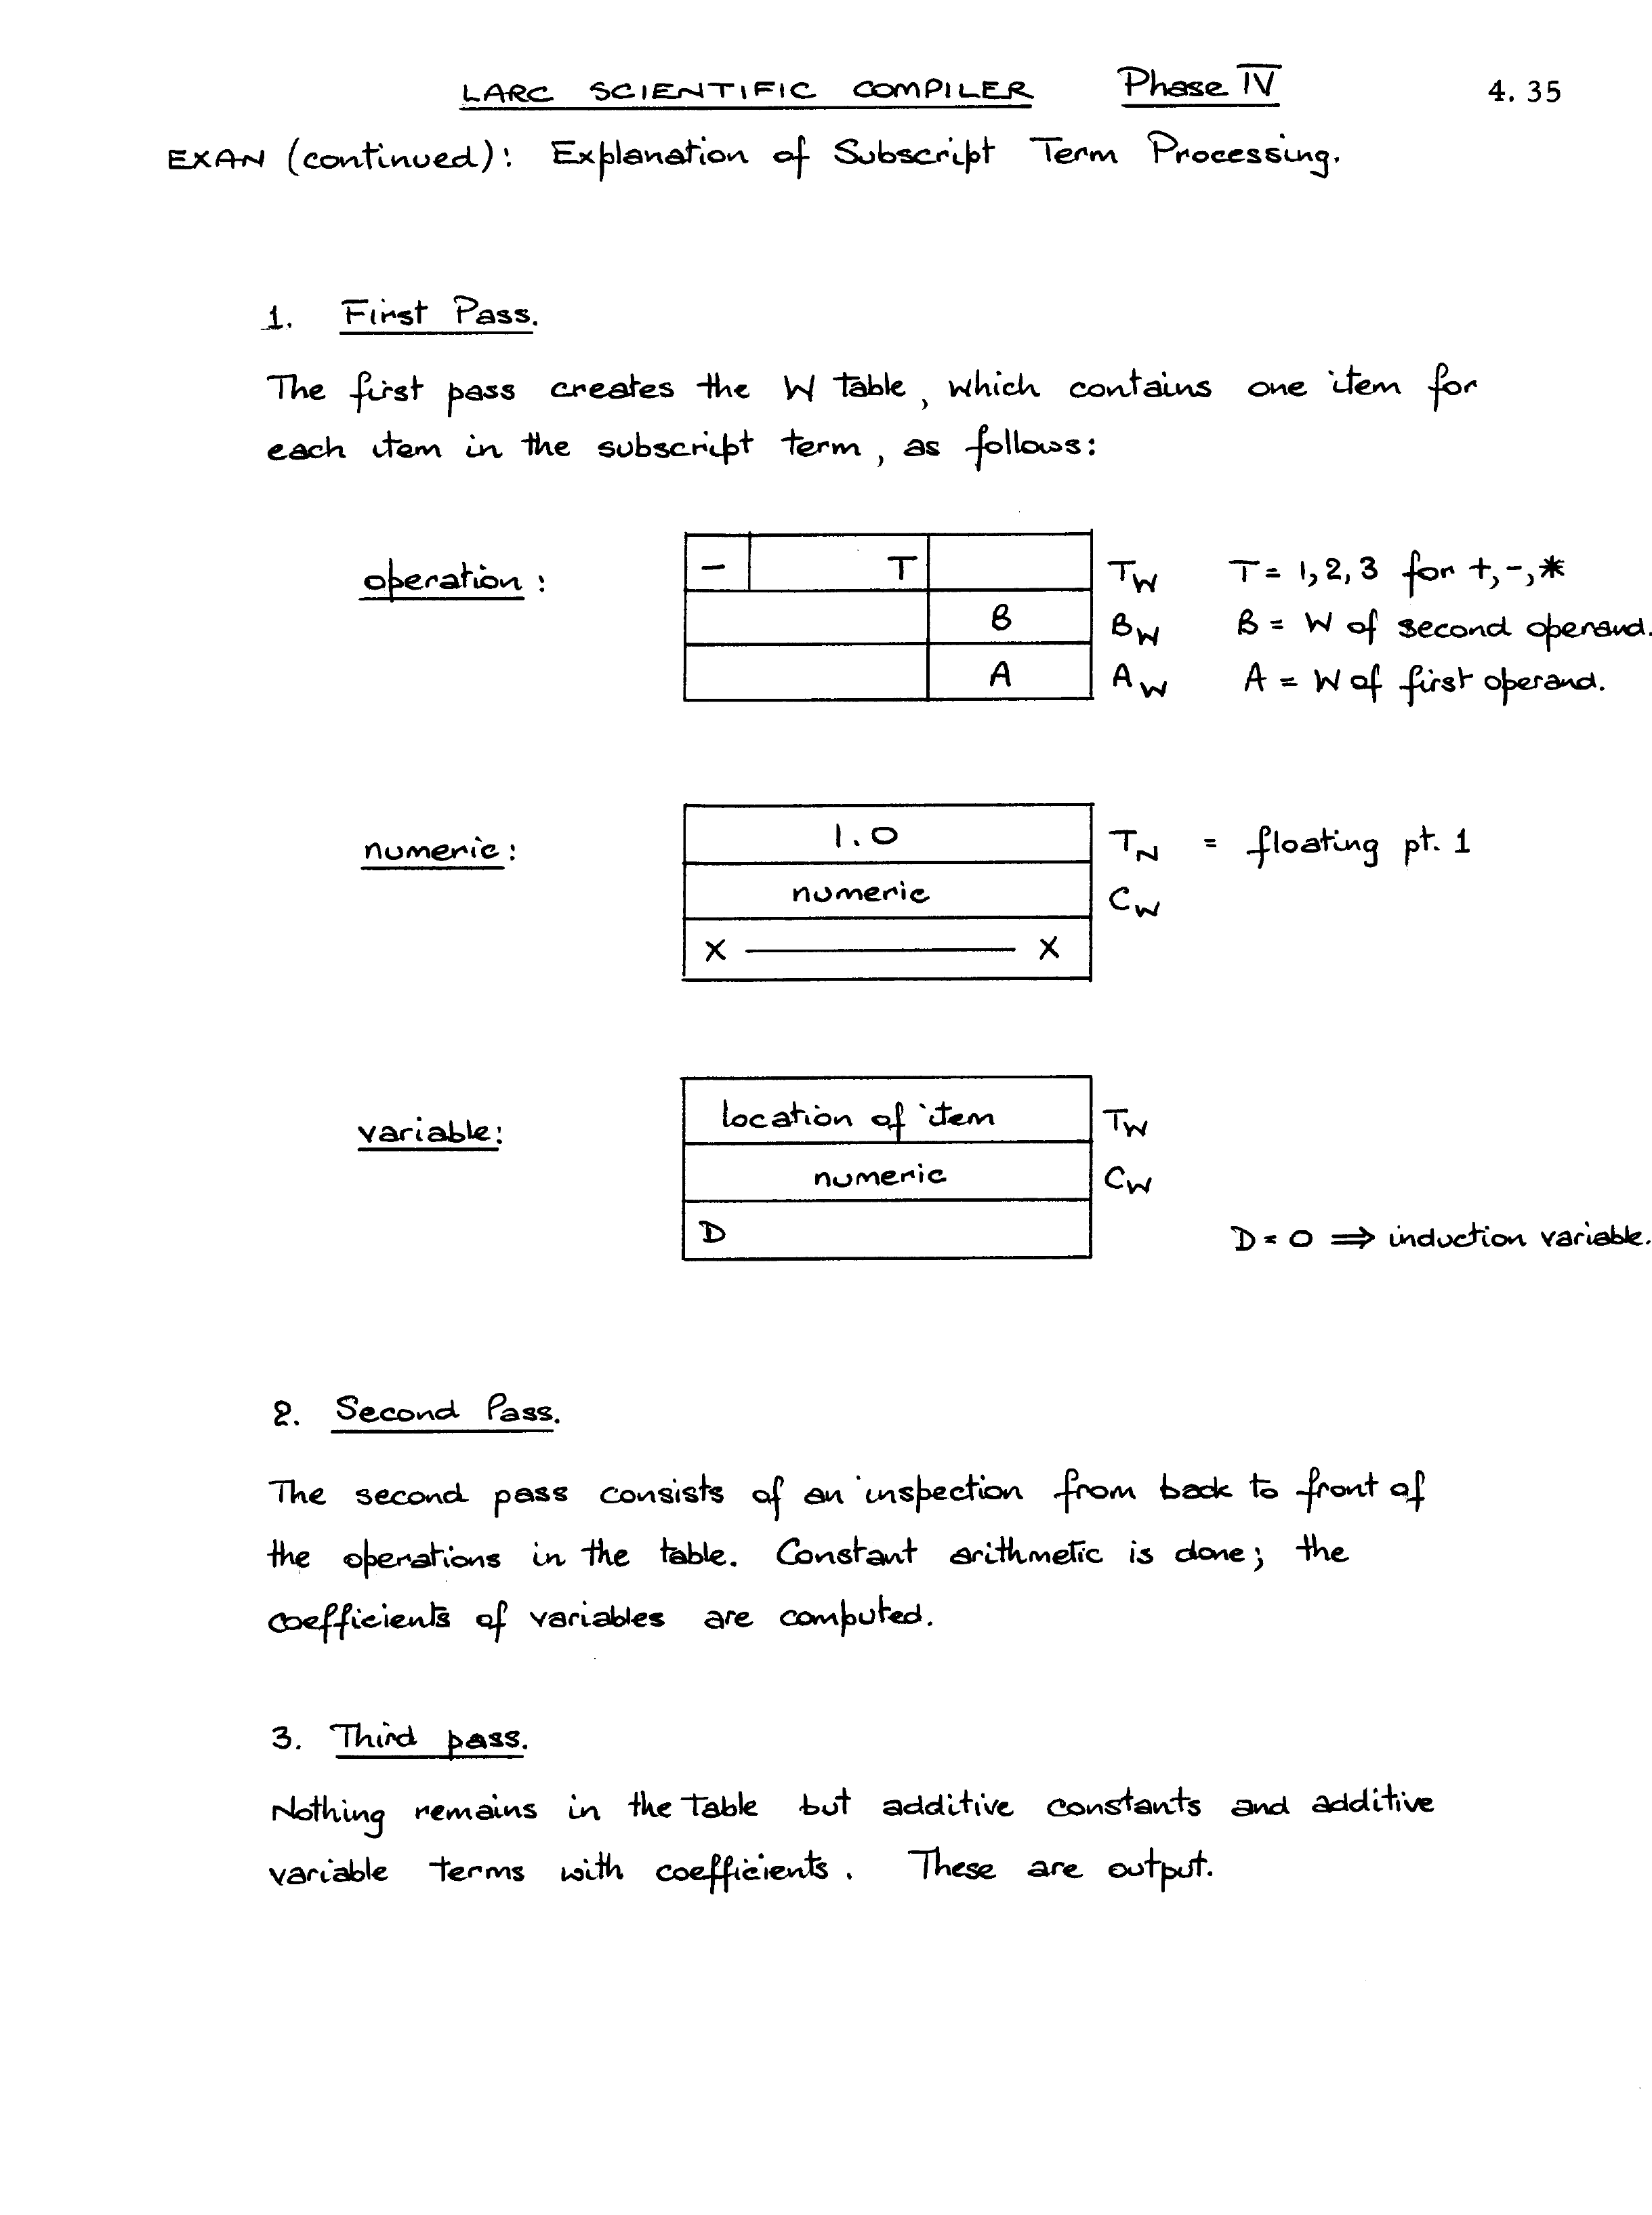 LARC SCIENTIFIC COMPILER Phase IV 4.35
EXAN (continued): Explanation of Subscript Term Processing.
1. First Pass.
The first pass creates the W table, which contains one item for
each item in the subscript term, as follows:
operation: – T T_W T = 1,2,3 for +,-,*
B B_W B = W of second operand.
A A_W A = W of first operand.
numeric: 1.0 T_N = floating pt. 1
numeric C_W
X ——— X
variable: location of item T_W
numeric C_W
D D = 0 ⇒ induction variable.
2. Second Pass.
The second pass consists of an inspection from back to front of
the operations in the table. Constant arithmetic is done; the
coefficients of variables are computed.
3. Third pass.
Nothing remains in the table but additive constants and additive
variable terms with coefficients. These are output.